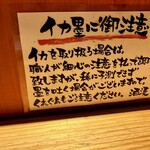 イカ墨に御注意
イカを取り扱う場合は、
職人が細心の注意をはらって調理
致しますが、稀に予測できず
墨を吐く場合がございますので
くれぐれもご注意ください。 酒達